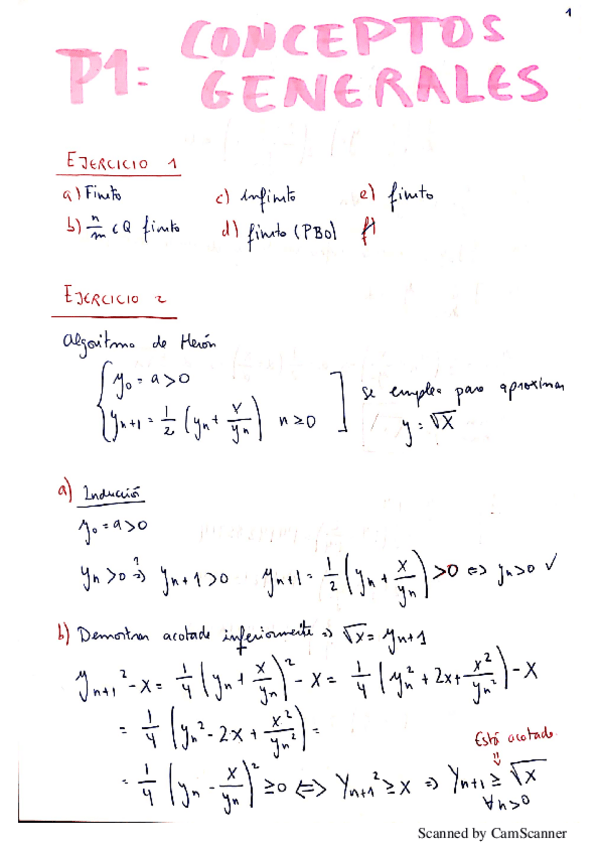 1
P1: CONCEPTOS
GENERALES
EJERCICIO 1
a) Finito c) infinito e) finito
b) n/m ∈ Q finito d) finito (PBo) f)
EJERCICIO 2
Algoritmo de Herón
{ y₀ = a > 0
yₙ₊₁ = 1/2 (yₙ + x/yₙ) n ≥ 0 ] se emplea para aproximar
y = √x
a) Inducción
y₀ = a > 0
yₙ > 0 ?⇒ yₙ₊₁ > 0 yₙ₊₁ = 1/2 (yₙ + x/yₙ) > 0 ⇔ yₙ > 0 ✓
b) Demostrar acotada inferiormente ⇒ √x = yₙ₊₁
yₙ₊₁² - x = 1/4 (yₙ + x/yₙ)² - x = 1/4 (yₙ² + 2x + x²/yₙ²) - x
= 1/4 (yₙ² - 2x + x²/yₙ²) =
Está acotada
⇓
= 1/4 (yₙ - x/yₙ)² ≥ 0 ⇔ yₙ₊₁² ≥ x ⇒ yₙ₊₁ ≥ √x
∀n>0
Scanned by CamScanner